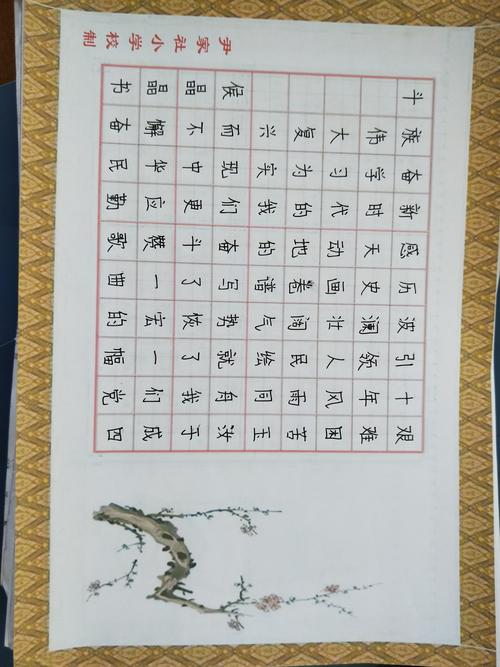 艰难困苦玉汝于成四
十年风雨同舟我们党
引领人民绘就了一幅
波澜壮阔气势恢宏的
历史画卷谱写了一曲
感天动地的奋斗赞歌
新时代的我们更应勤
奋学习为实现中华民
族伟大复兴而不懈奋
斗 侯晶晶书
尹家社小学校制